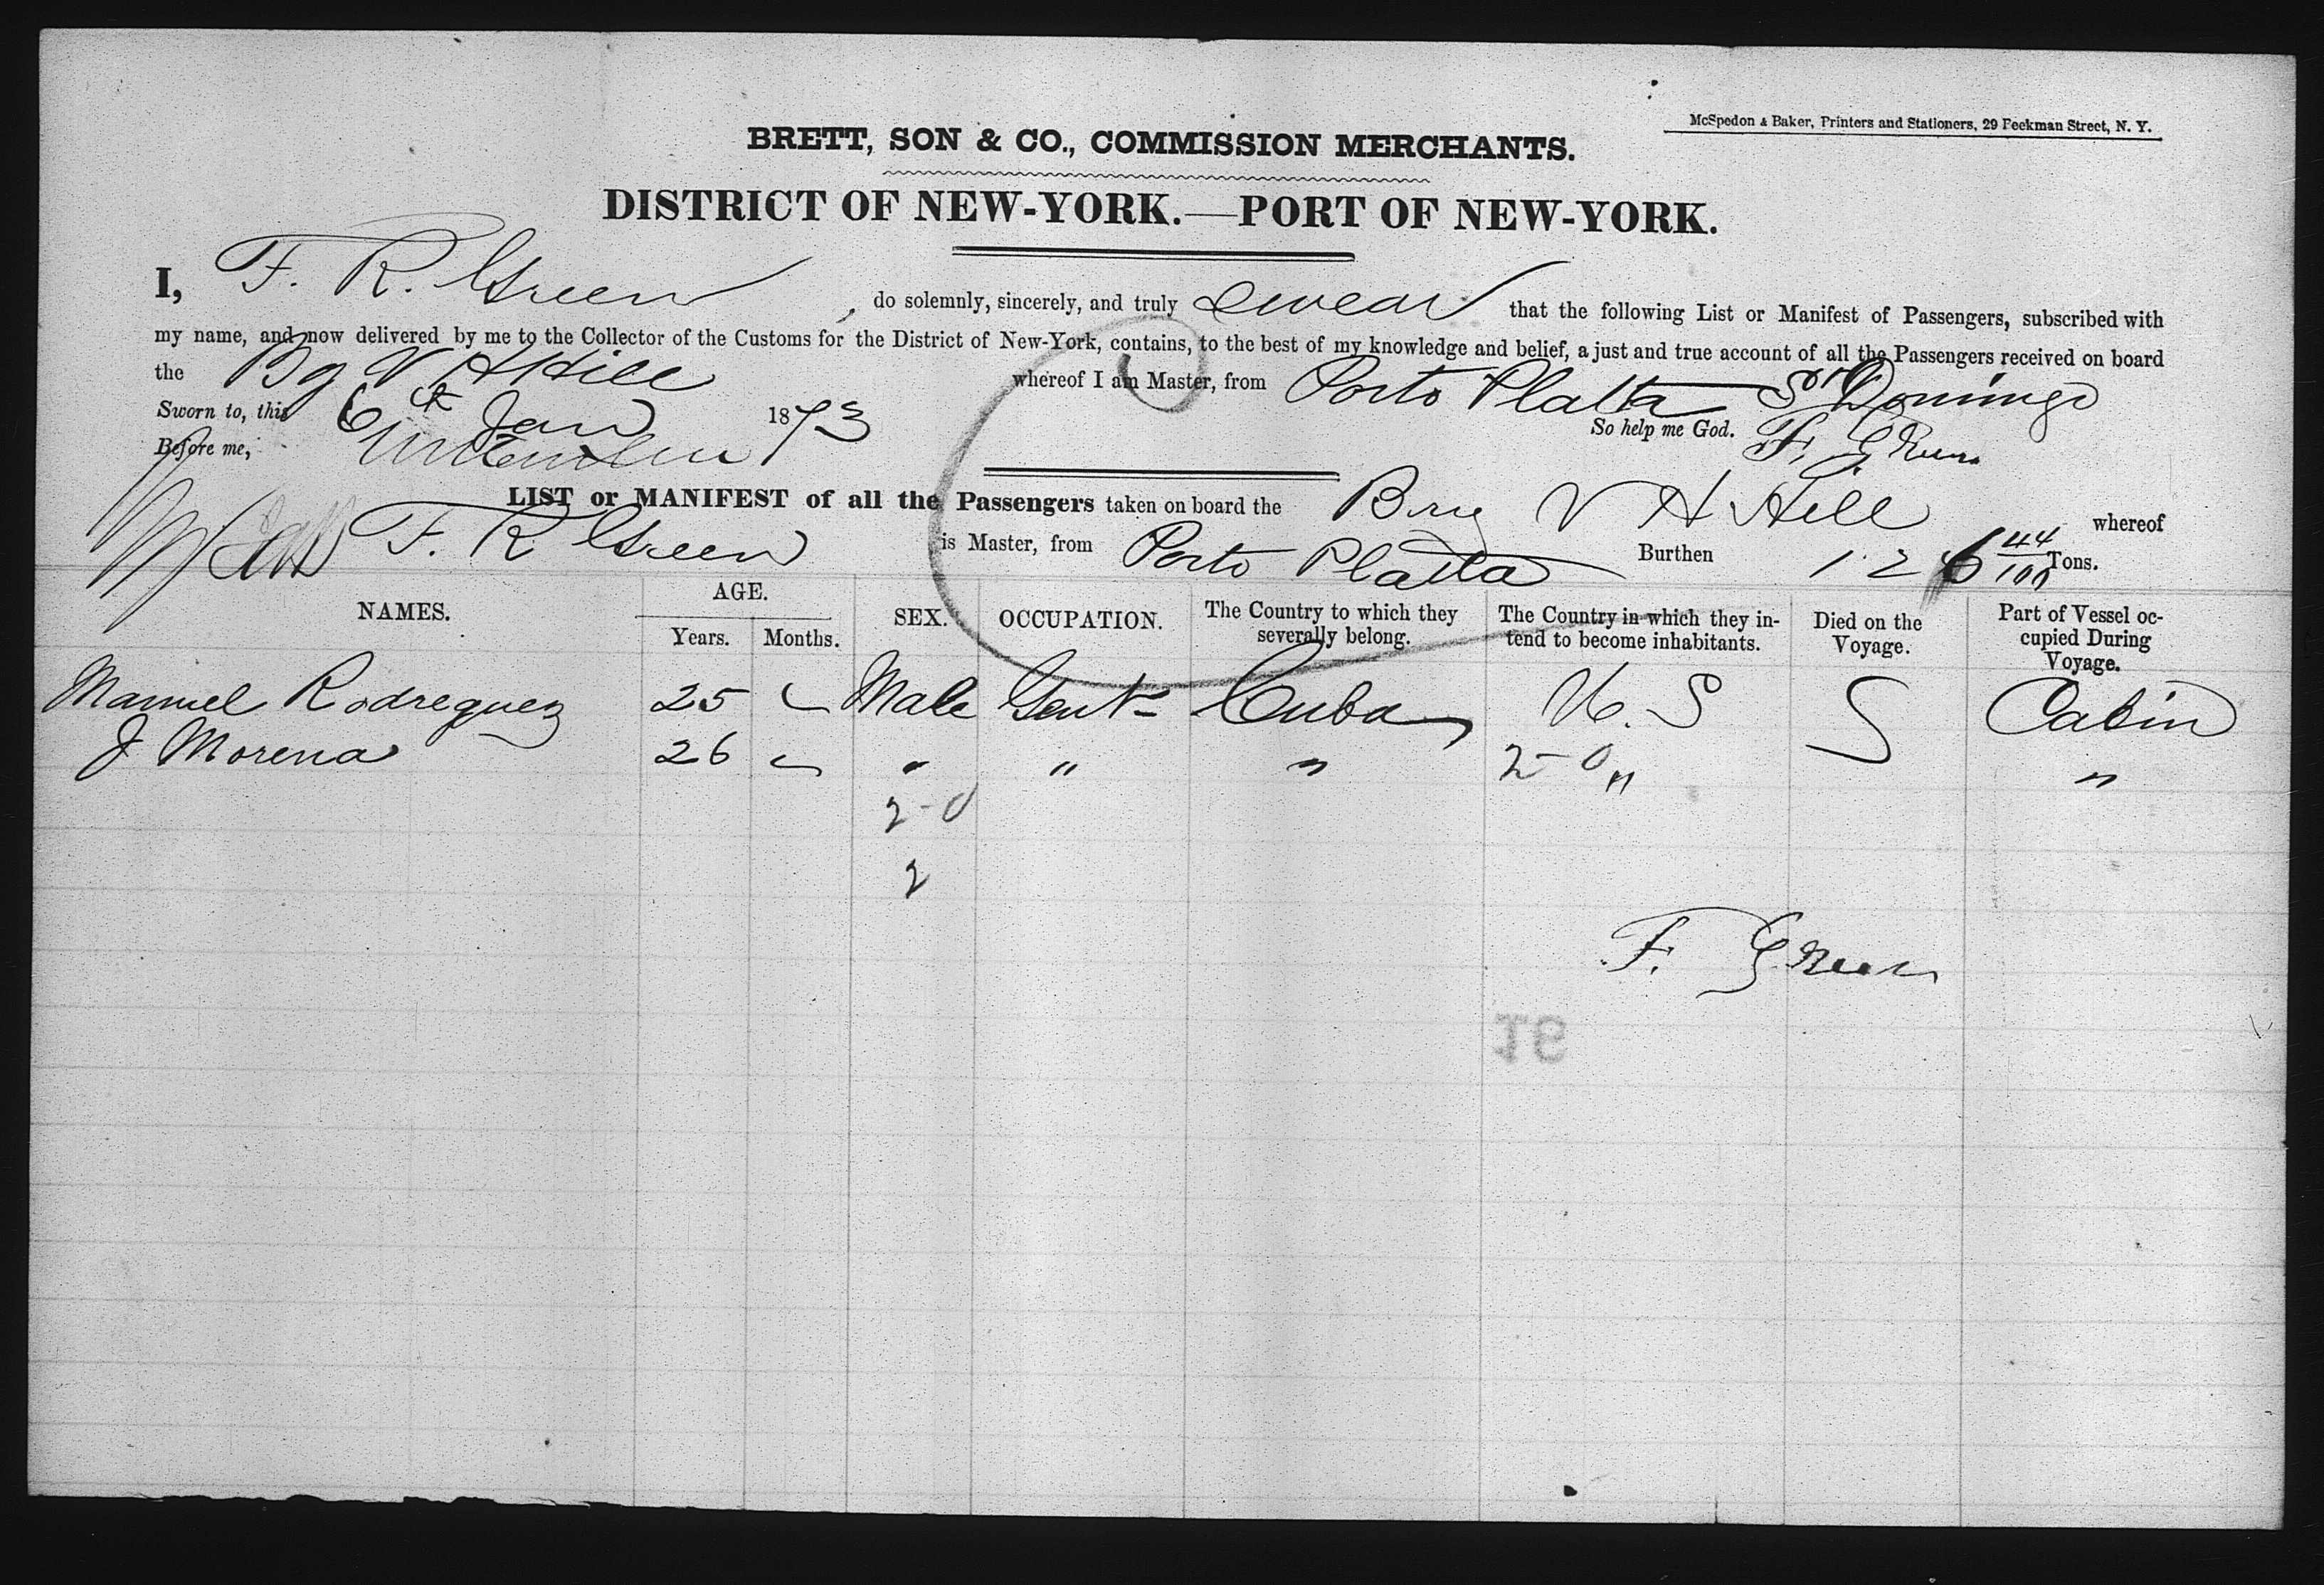 McSpedon & Baker, Printers and Stationers, 29 Beekman Street, N. Y.
BRETT, SON & CO., COMMISSION MERCHANTS.
DISTRICT OF NEW-YORK.—PORT OF NEW-YORK.
I, F. R. Green, do solemnly, sincerely, and truly swear that the following List or Manifest of Passengers, subscribed with
my name, and now delivered by me to the Collector of the Customs for the District of New-York, contains, to the best of my knowledge and belief, a just and true account of all the Passengers received on board
the Bg V H Hill whereof I am Master, from Porto Platta St Domingo
Sworn to, this 6th Jan 1873 So help me God. F. Green
Before me,
LIST or MANIFEST of all the Passengers taken on board the Brig V H Hill whereof
F. R Green is Master, from Porto Platta Burthen 126 44/100 Tons.
NAMES. AGE. Years. Months. SEX. OCCUPATION. The Country to which they severally belong. The Country in which they intend to become inhabitants. Died on the Voyage. Part of Vessel occupied During Voyage.
Manuel Rodreguez 25 Male Gent Cuba U. S Cabin
J Morena 26 " " " 2-0 " "
2-0
2
F. Green
16